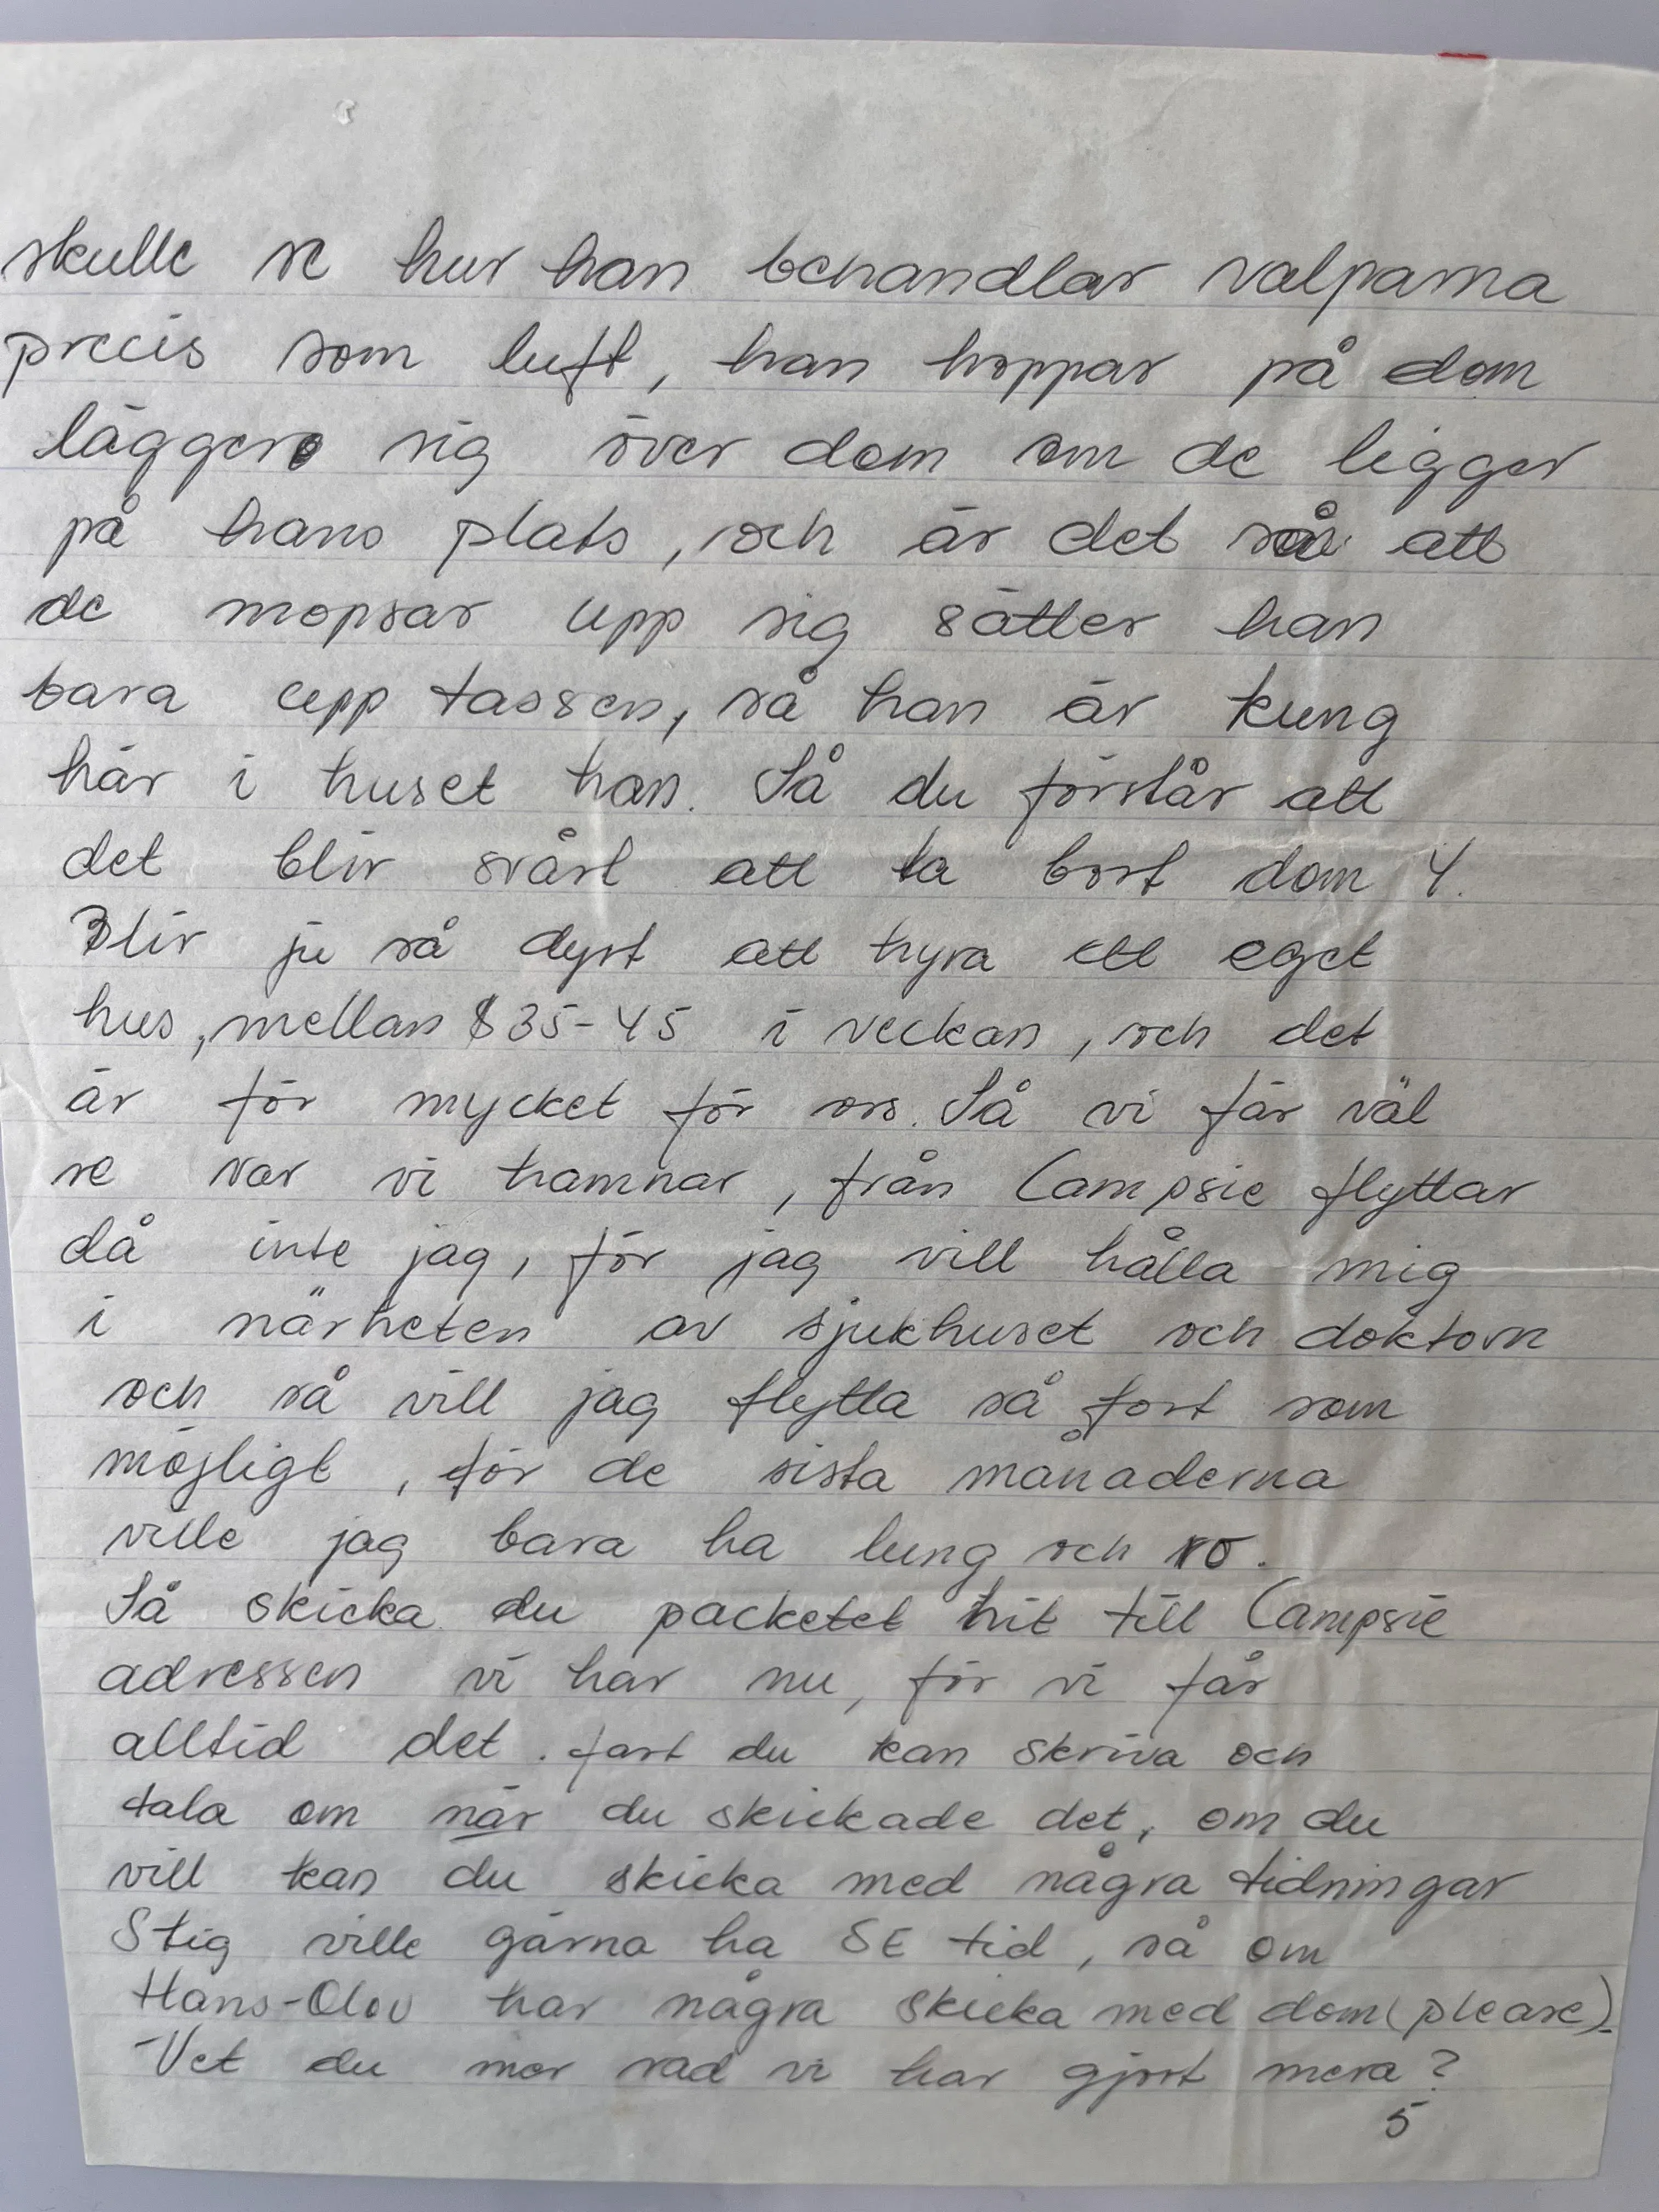 skulle se hur han behandlar valparna
precis som luft, han hoppar på dom
lägger sig över dom om de ligger
på hans plats, och är det så att
de mopsar upp sig sätter han
bara upp tassen, så han är kung
här i huset han. Så du förstår att
det blir svårt att ta bort dom 4.
Blir ju så dyrt att hyra ett eget
hus, mellan $35-45 i veckan, och det
är för mycket för oss. Så vi får väl
se var vi hamnar, från Campsie flyttar
då inte jag, för jag vill hålla mig
i närheten av sjukhuset och doktorn
och så vill jag flytta så fort som
möjligt, för de sista månaderna
ville jag bara ha lung och ro.
Så skicka du packetet hit till Campsie
adressen vi har nu, för vi får
alltid det. fast du kan skriva och
tala om när du skickade det, om du
vill kan du skicka med några tidningar
Stig ville gärna ha SE tid, så om
Hans-Olov har några skicka med dom (please).
-Vet du mor vad vi har gjort mera?
5